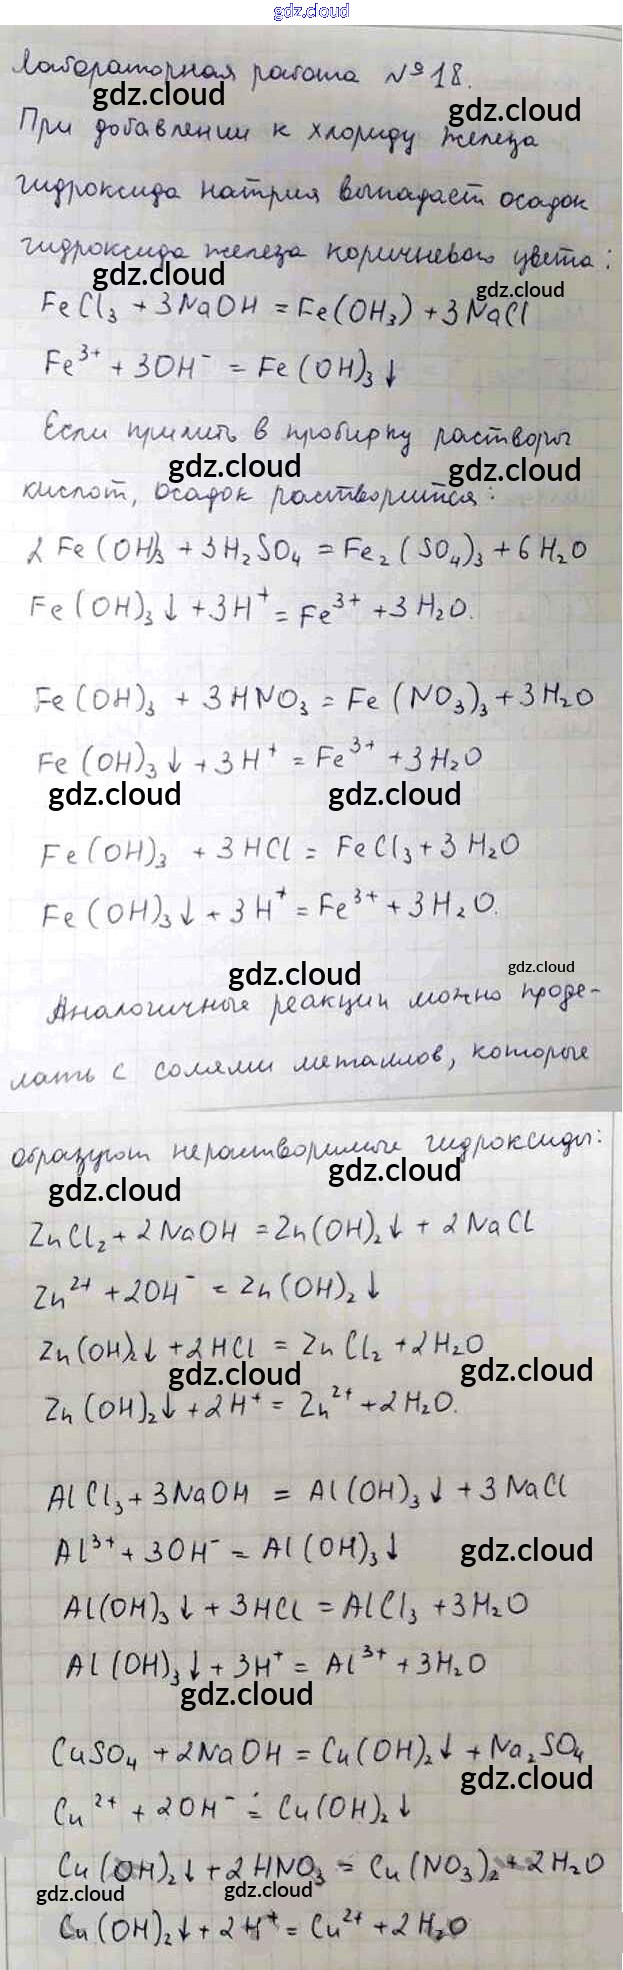 gdz.cloud
Лабораторная работа №18.
gdz.cloud
gdz.cloud
При добавлении к хлориду железа
гидроксида натрия выпадает осадок
гидроксида железа коричневого цвета:
gdz.cloud
gdz.cloud
FeCl₃ + 3NaOH = Fe(OH₃) + 3NaCl
Fe³⁺ + 3OH⁻ = Fe(OH)₃↓
Если прилить в пробирку растворы
gdz.cloud
gdz.cloud
кислот, осадок растворится:
2Fe(OH)₃ + 3H₂SO₄ = Fe₂(SO₄)₃ + 6H₂O
Fe(OH)₃↓ + 3H⁺ = Fe³⁺ + 3H₂O.
Fe(OH)₃ + 3HNO₃ = Fe(NO₃)₃ + 3H₂O
Fe(OH)₃↓ + 3H⁺ = Fe³⁺ + 3H₂O
gdz.cloud
gdz.cloud
Fe(OH)₃ + 3HCl = FeCl₃ + 3H₂O
Fe(OH)₃↓ + 3H⁺ = Fe³⁺ + 3H₂O.
gdz.cloud
gdz.cloud
Аналогичные реакции можно проде-
лать с солями металлов, которые
образуют нерастворимые гидроксиды:
gdz.cloud
gdz.cloud
ZnCl₂ + 2NaOH = Zn(OH)₂↓ + 2NaCl
Zn²⁺ + 2OH⁻ = Zn(OH)₂↓
Zn(OH)₂↓ + 2HCl = ZnCl₂ + 2H₂O
gdz.cloud
gdz.cloud
Zn(OH)₂↓ + 2H⁺ = Zn²⁺ + 2H₂O.
AlCl₃ + 3NaOH = Al(OH)₃↓ + 3NaCl
Al³⁺ + 3OH⁻ = Al(OH)₃↓
gdz.cloud
Al(OH)₃↓ + 3HCl = AlCl₃ + 3H₂O
Al(OH)₃↓ + 3H⁺ = Al³⁺ + 3H₂O
gdz.cloud
CuSO₄ + 2NaOH = Cu(OH)₂↓ + Na₂SO₄
gdz.cloud
Cu²⁺ + 2OH⁻ = Cu(OH)₂↓
Cu(OH)₂↓ + 2HNO₃ = Cu(NO₃)₂ + 2H₂O
gdz.cloud
gdz.cloud
Cu(OH)₂↓ + 2H⁺ = Cu²⁺ + 2H₂O